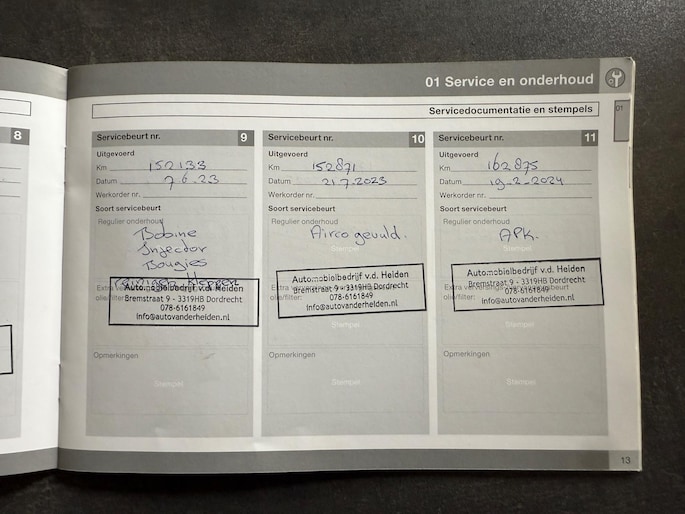 01 Service en onderhoud
Servicedocumentatie en stempels
01
8
Servicebeurt nr. 9
Uitgevoerd
Km 152133
Datum 7.6.23
Werkorder nr.
Soort servicebeurt
Regulier onderhoud
Bobine
Injector
Bougies
reinigen kleppen
Automobielbedrijf v.d. Heiden
Bremstraat 9 - 3319HB Dordrecht
078-6161849
info@autovanderheiden.nl
olie/filter:
Opmerkingen
Stempel
Servicebeurt nr. 10
Uitgevoerd
Km 152871
Datum 21.7.2023
Werkorder nr.
Soort servicebeurt
Regulier onderhoud
Airco gevuld.
Stempel
Automobielbedrijf v.d. Heiden
Bremstraat 9 - 3319HB Dordrecht
olie/filter: 078-6161849
info@autovanderheiden.nl
Stempel
Opmerkingen
Stempel
Servicebeurt nr. 11
Uitgevoerd
Km 162875
Datum 19-2-2024
Werkorder nr.
Soort servicebeurt
Regulier onderhoud
APK.
Stempel
Automobielbedrijf v.d. Heiden
Bremstraat 9 - 3319HB Dordrecht
olie/filter: 078-6161849
info@autovanderheiden.nl
Stempel
Opmerkingen
Stempel
13